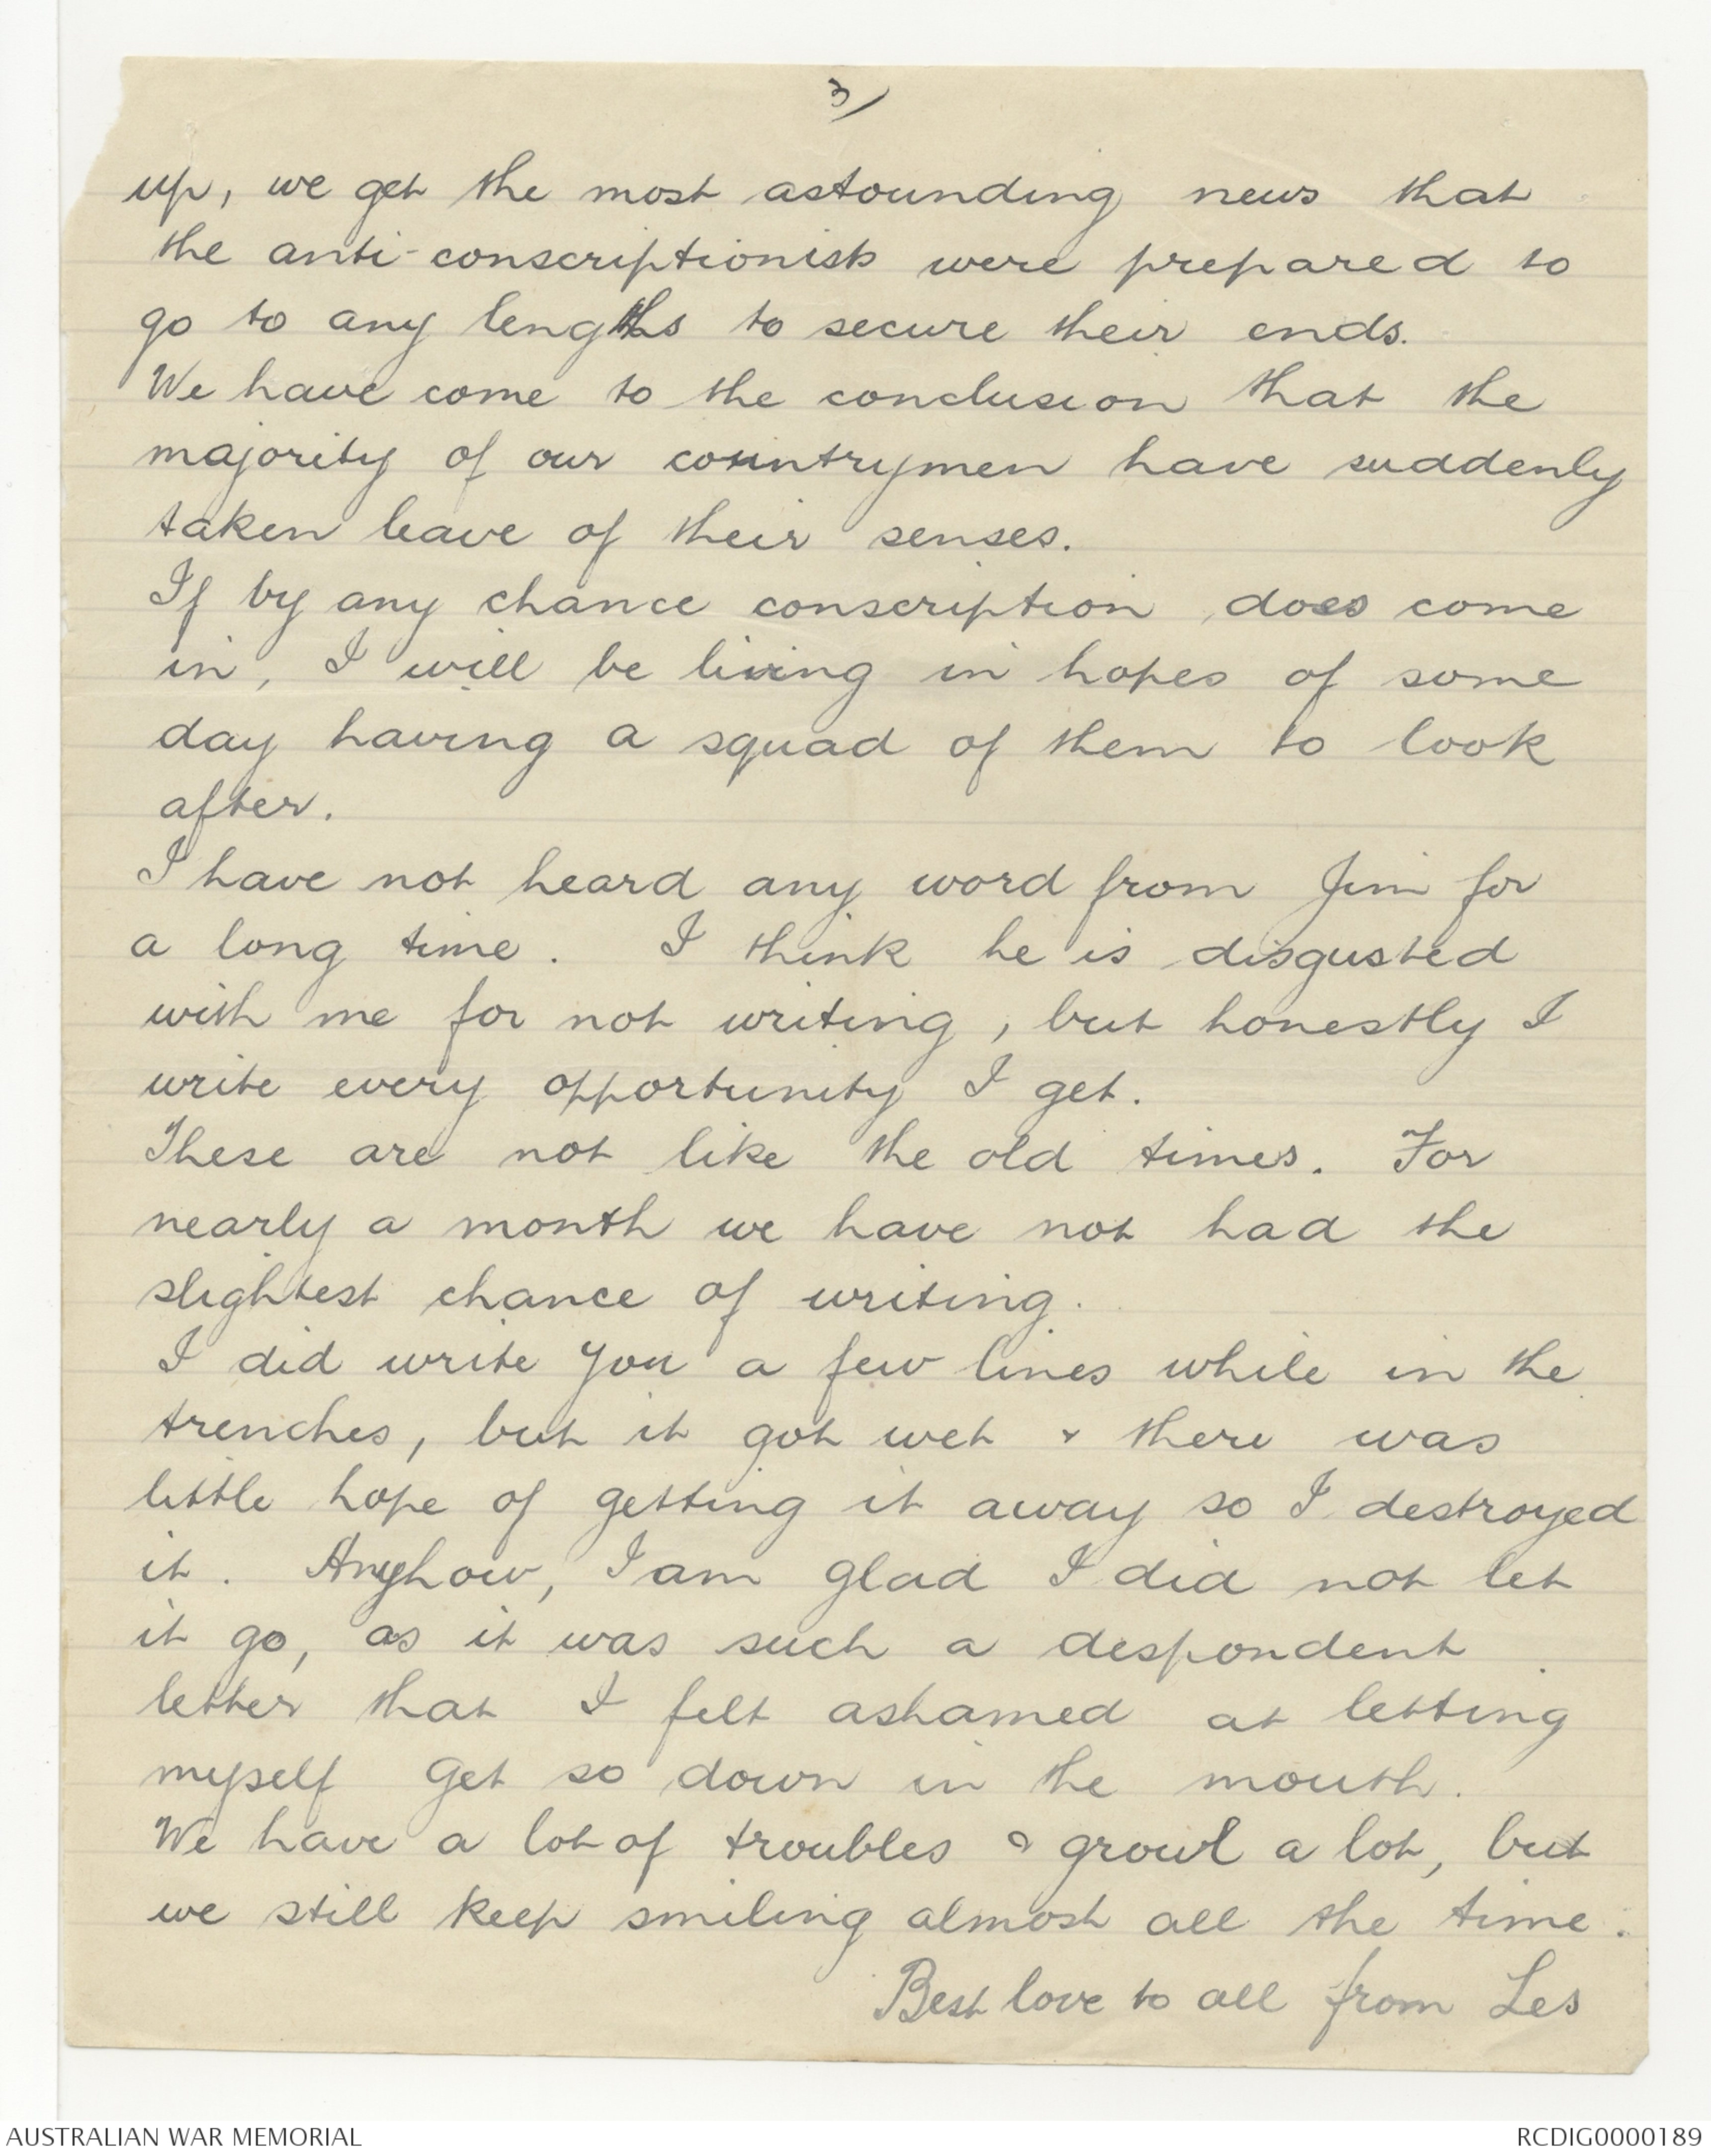 3/
up, we get the most astounding news that
the anti-conscriptionists were prepared to
go to any lengths to secure their ends.
We have come to the conclusion that the
majority of our countrymen have suddenly
taken leave of their senses.
If by any chance conscription does come
in, I will be living in hopes of some
day having a squad of them to look
after.
I have not heard any word from Jim for
a long time. I think he is disgusted
with me for not writing, but honestly I
write every opportunity I get.
These are not like the old times. For
nearly a month we have not had the
slightest chance of writing.
I did write you a few lines while in the
trenches, but it got wet & there was
little hope of getting it away so I destroyed
it. Anyhow, I am glad I did not let
it go, as it was such a despondent
letter that I felt ashamed at letting
myself get so down in the mouth.
We have a lot of troubles & growl a lot, but
we still keep smiling almost all the time.
Best love to all from Les
AUSTRALIAN WAR MEMORIAL
RCDIG0000189